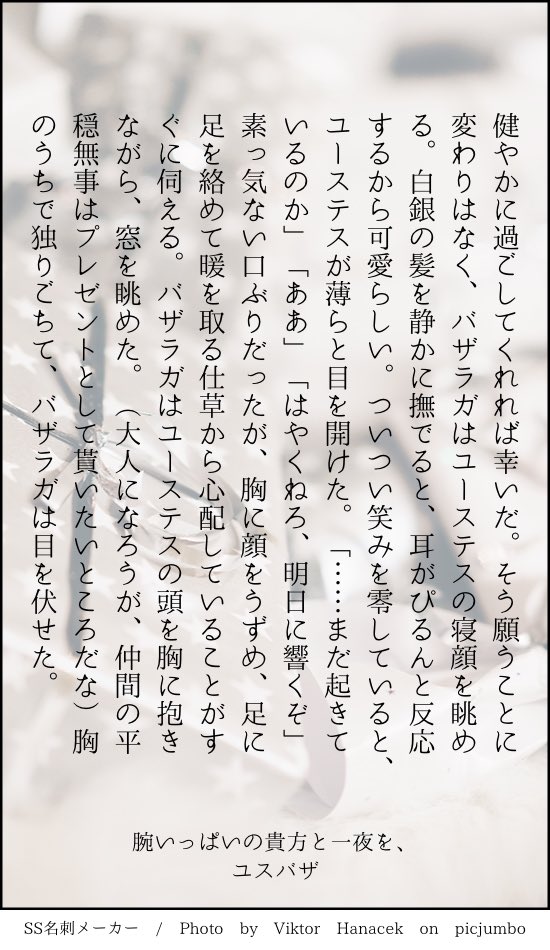 健やかに過ごしてくれれば幸いだ。そう願うことに
変わりはなく、バザラガはユーステスの寝顔を眺め
る。白銀の髪を静かに撫でると、耳がぴるんと反応
するから可愛らしい。ついつい笑みを零していると、
ユーステスが薄らと目を開けた。「……まだ起きて
いるのか」「ああ」「はやくねろ、明日に響くぞ」
素っ気ない口ぶりだったが、胸に顔をうずめ、足に
足を絡めて暖を取る仕草から心配していることがす
ぐに伺える。バザラガはユーステスの頭を胸に抱き
ながら、窓を眺めた。（大人になろうが、仲間の平
穏無事はプレゼントとして貰いたいところだな）胸
のうちで独りごちて、バザラガは目を伏せた。
腕いっぱいの貴方と一夜を、
ユスバザ
SS名刺メーカー / Photo by Viktor Hanacek on picjumbo